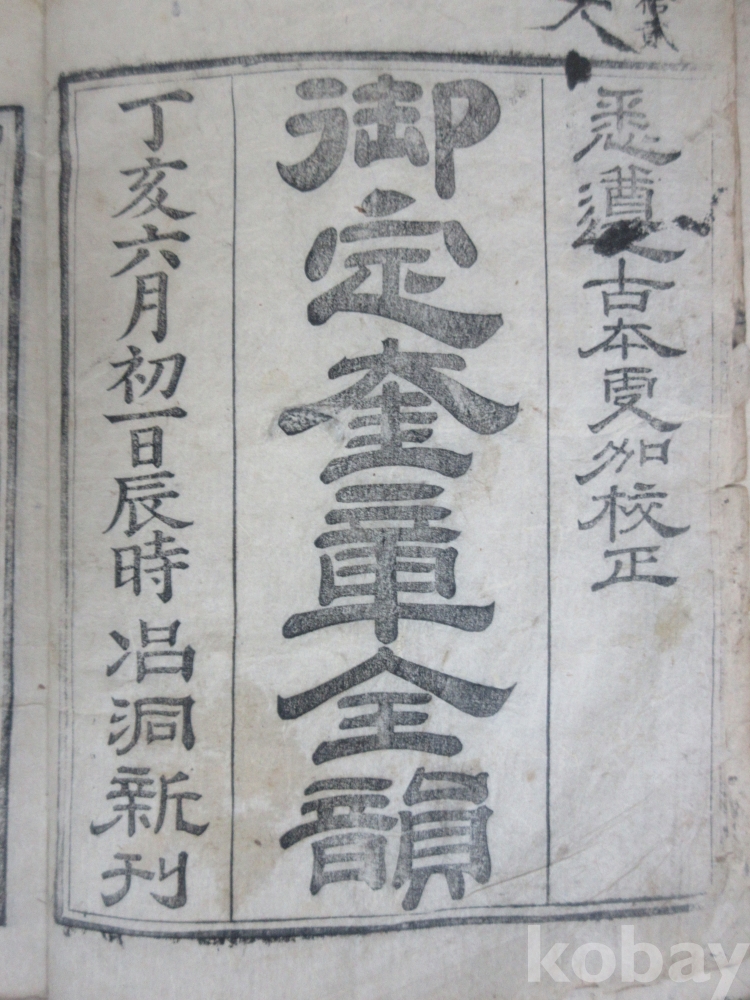 悉遵古本更加校正
御定奎章全韻
丁亥六月初一日辰時冶洞新刊
kobay